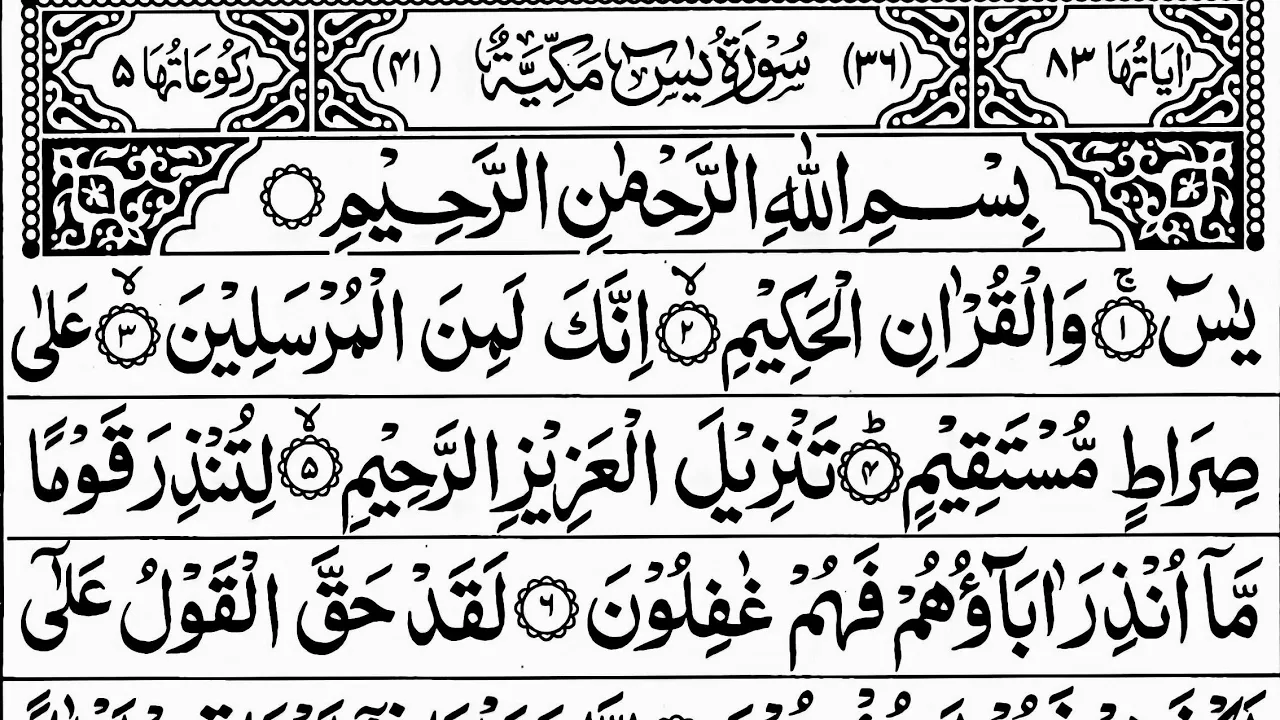 اٰيَاتُهَا ۸۳ (۳۶) سُوْرَةُ يٰسٓ مَكِّيَّةٌ (۴۱) رُكُوْعَاتُهَا ۵
بِسْمِ اللهِ الرَّحْمٰنِ الرَّحِيْمِ
يٰسٓ ۚ﴿۱﴾ وَالْقُرْاٰنِ الْحَكِيْمِ ۙ﴿۲﴾ اِنَّكَ لَمِنَ الْمُرْسَلِيْنَ ۙ﴿۳﴾ عَلٰى
صِرَاطٍ مُّسْتَقِيْمٍ ؕ﴿۴﴾ تَنْزِيْلَ الْعَزِيْزِ الرَّحِيْمِ ۙ﴿۵﴾ لِتُنْذِرَ قَوْمًا
مَّاۤ اُنْذِرَ اٰبَآؤُهُمْ فَهُمْ غٰفِلُوْنَ ﴿۶﴾ لَقَدْ حَقَّ الْقَوْلُ عَلٰٓى